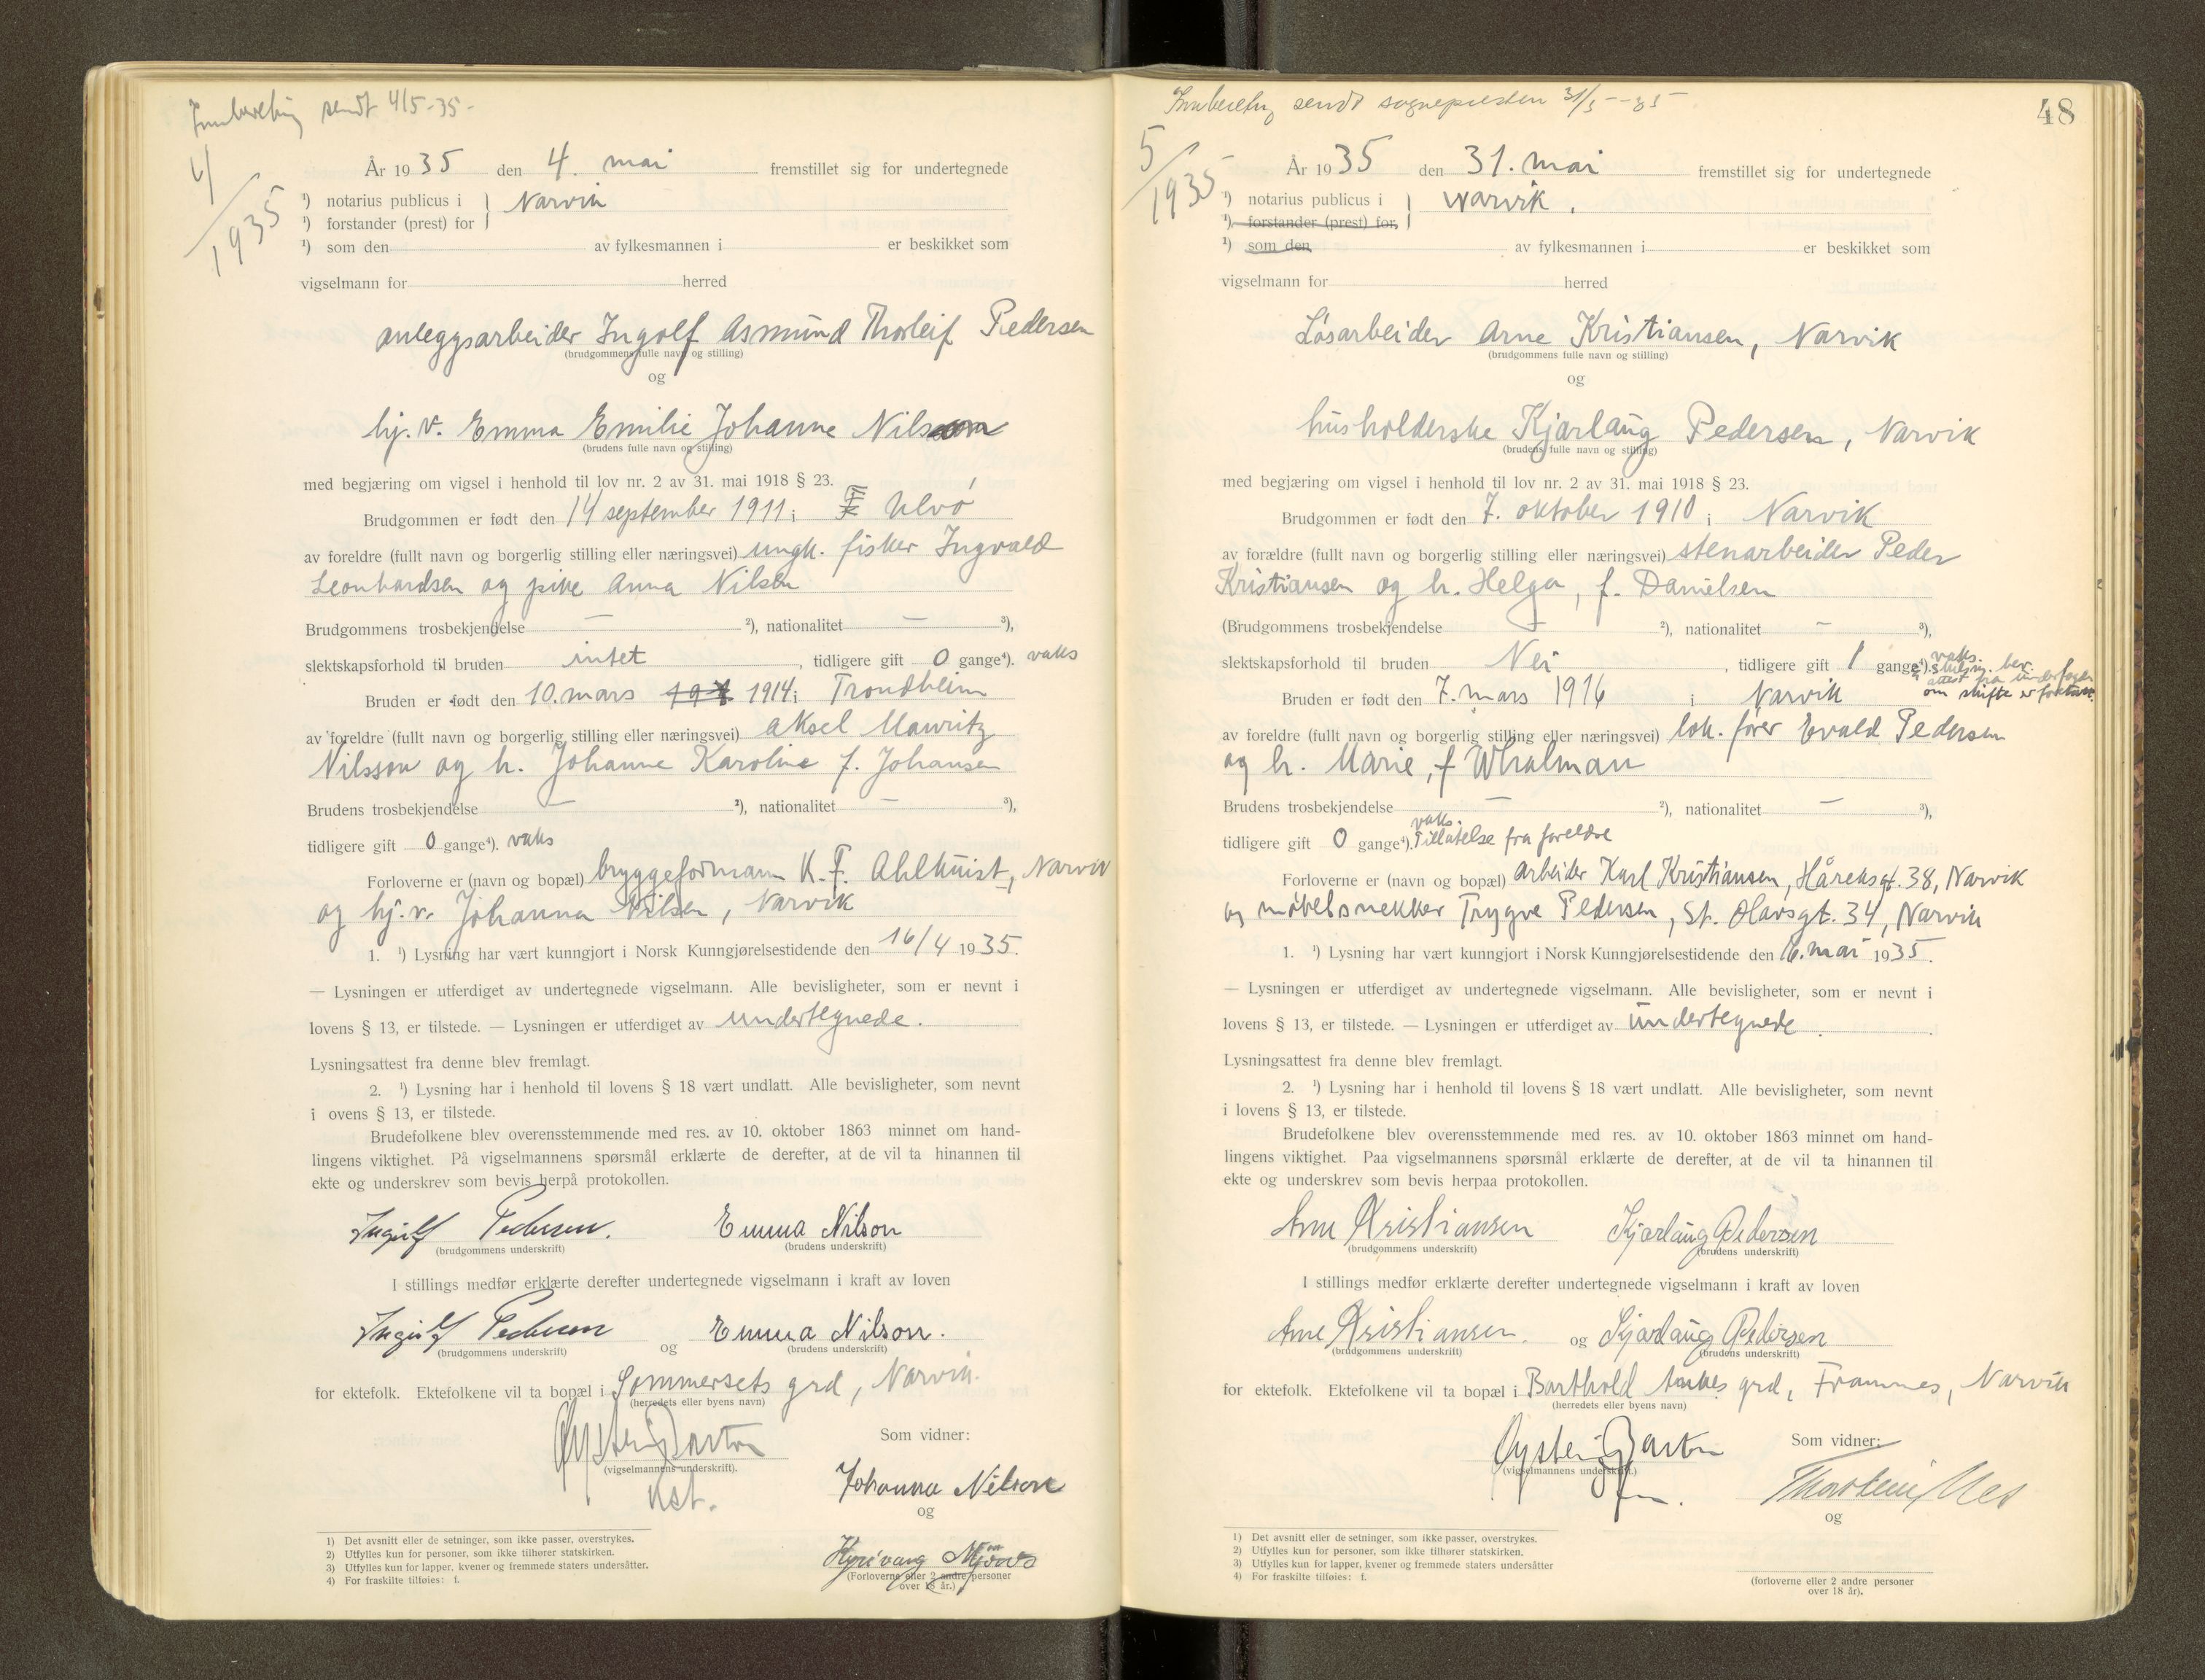 Innberetning sendt 4/5-35-
4/1935
År 1935 den 4. mai fremstillet sig for undertegnede
¹) notarius publicus i } Narvik
¹) forstander (prest) for
¹) som den av fylkesmannen i er beskikket som
vigselmann for herred
anleggsarbeider Ingolf Asmund Thorleif Pedersen
(brudgommens fulle navn og stilling)
og
hj. v. Emma Emilie Johanne Nilsson
(brudens fulle navn og stilling)
med begjæring om vigsel i henhold til lov nr. 2 av 31. mai 1918 § 23.
Brudgommen er født den 14 september 1911 i Ulvö
av foreldre (fullt navn og borgerlig stilling eller næringsvei) ungk. fisker Ingvald
Leonhardsen og pike Anna Nilsen
Brudgommens trosbekjendelse — ²), nationalitet — ³),
slektskapsforhold til bruden intet, tidligere gift 0 gange⁴). vaks
Bruden er født den 10. mars 1914 i Trondheim
av foreldre (fullt navn og borgerlig stilling eller næringsvei) Aksel Mauritz
Nilsson og h. Johanne Karoline f. Johansen
Brudens trosbekjendelse — ²), nationalitet — ³),
tidligere gift 0 gange⁴). vaks
Forloverne er (navn og bopæl) bryggeformann K. F. Ahlkuist, Narvik
og hj. v. Johanna Nilsen, Narvik
1. ¹) Lysning har vært kunngjort i Norsk Kunngjørelsestidende den 16/4 1935.
— Lysningen er utferdiget av undertegnede vigselmann. Alle bevisligheter, som er nevnt i
lovens § 13, er tilstede. — Lysningen er utferdiget av undertegnede.
Lysningsattest fra denne blev fremlagt.
2. ¹) Lysning har i henhold til lovens § 18 vært undlatt. Alle bevisligheter, som nevnt
i ovens § 13, er tilstede.
Brudefolkene blev overensstemmende med res. av 10. oktober 1863 minnet om hand-
lingens viktighet. På vigselmannens spørsmål erklærte de derefter, at de vil ta hinannen til
ekte og underskrev som bevis herpå protokollen.
Ingolf Pedersen. Emma Nilson
(brudgommens underskrift) (brudens underskrift)
I stillings medfør erklærte derefter undertegnede vigselmann i kraft av loven
Ingolf Pedersen og Emma Nilson.
(brudgommens underskrift) (brudens underskrift)
for ektefolk. Ektefolkene vil ta bopæl i Sommersets grd, Narvik.
(herredets eller byens navn)
Øystein
(vigselmannens underskrift).
kst.
Som vidner:
Johanna Nilson
og
(Forloverne eller 2 andre personer
over 18 år.)
1) Det avsnitt eller de setninger, som ikke passer, overstrykes.
2) Utfylles kun for personer, som ikke tilhører statskirken.
3) Utfylles kun for lapper, kvener og fremmede staters undersåtter.
4) For fraskilte tilføies: f.
Innberetng sendt sognepresten 31/5--35
48
5/1935
År 1935 den 31. mai fremstillet sig for undertegnede
¹) notarius publicus i } Narvik.
¹) forstander (prest) for
¹) som den av fylkesmannen i er beskikket som
vigselmann for herred
Lösarbeider Arne Kristiansen, Narvik
(brudgommens fulle navn og stilling)
og
husholderske Kjarlaug Pedersen, Narvik
(brudens fulle navn og stilling)
med begjæring om vigsel i henhold til lov nr. 2 av 31. mai 1918 § 23.
Brudgommen er født den 7. oktober 1910 i Narvik
av forældre (fullt navn og borgerlig stilling eller næringsvei) stenarbeider Peder
Kristiansen og h. Helga, f. Danielsen
(Brudgommens trosbekjendelse — ²), nationalitet — ³),
slektskapsforhold til bruden Nei, tidligere gift 1 gange⁴). vaks. skilsm. bev.
attest fra
om skifte er foretatt.
Bruden er født den 7. mars 1916 i Narvik
av foreldre (fullt navn og borgerlig stilling eller næringsvei) lok. fører Evald Pedersen
og h. Marie, f Whalman
Brudens trosbekjendelse — ²), nationalitet — ³),
vaks.
tidligere gift 0 gange⁴). Tillatelse fra foreldre
Forloverne er (navn og bopæl) arbeider Karl Kristiansen, Håreksgt. 38, Narvik
og møbelsnekker Trygve Pedersen, St. Olavsgt. 34, Narvik
1. ¹) Lysning har vært kunngjort i Norsk Kunngjørelsestidende den 16. mai 1935.
— Lysningen er utferdiget av undertegnede vigselmann. Alle bevisligheter, som er nevnt i
lovens § 13, er tilstede. — Lysningen er utferdiget av undertegnede.
Lysningsattest fra denne blev fremlagt.
2. ¹) Lysning har i henhold til lovens § 18 vært undlatt. Alle bevisligheter, som nevnt
i lovens § 13, er tilstede.
Brudefolkene blev overensstemmende med res. av 10. oktober 1863 minnet om hand-
lingens viktighet. Paa vigselmannens spørsmål erklærte de derefter, at de vil ta hinannen til
ekte og underskrev som bevis herpaa protokollen.
Arne Kristiansen Kjarlaug Pedersen
(brudgommens underskrift) (brudens underskrift)
I stillings medfør erklærte derefter undertegnede vigselmann i kraft av loven
Arne Kristiansen. og Kjarlaug Pedersen
(brudgommens underskrift) (brudens underskrift)
for ektefolk. Ektefolkene vil ta bopæl i Barthold grd, Framnes, Narvik
(herredets eller byens navn)
Øystein
(vigselmannens underskrift.)
Som vidner:
Thorstein
og
(forloverne eller 2 andre personer
over 18 år).
1) Det avsnitt eller de setninger, som ikke passer, overstrykes.
2) Utfylles kun for personer, som ikke tilhører statskirken.
3) Utfylles kun for lapper, kvener og fremmede staters undersåtter
4) For fraskilte tilføies: f.